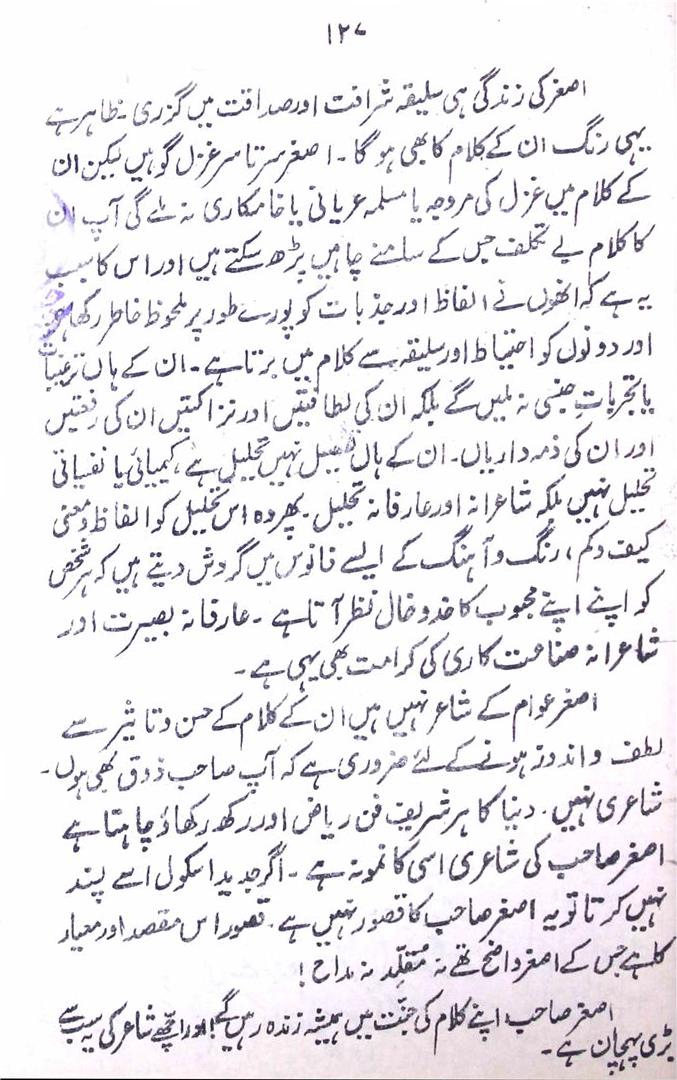 ۱۲۷
اصغر کی زندگی ہی سلیقہ شرافت اور صداقت میں گزری۔ ظاہر ہے
یہی رنگ ان کے کلام کا بھی ہوگا۔ اصغر سرتا سر غزل گو ہیں لیکن ان
کے کلام میں غزل کی مروجہ یا مسلمہ عریانی یا خامکاری نہ ملے گی آپ ان
کا کلام بے تکلف جس کے سامنے چاہیں پڑھ سکتے ہیں اور اس کا سبب
یہ ہے کہ انھوں نے الفاظ اور جذبات کو پورے طور پر ملحوظ خاطر رکھا ہے
اور دونوں کو احتیاط اور سلیقہ سے کلام میں برتا ہے۔ ان کے ہاں ترغیبات
یا تجربات جنسی نہ ملیں گے بلکہ ان کی لطافتیں اور نزاکتیں ان کی رفعتیں
اور ان کی ذمہ داریاں۔ ان کے ہاں نہیں تحلیل ہے، کیمیائی یا نفسیاتی
تحلیل نہیں بلکہ شاعرانہ اور عارفانہ تحلیل۔ پھر وہ اس تحلیل کو الفاظ و معنی
کیف و کم، رنگ و آہنگ کے ایسے فانوس میں گردش دیتے ہیں کہ ہر شخص
کو اپنے اپنے محبوب کا خدوخال نظر آتا ہے۔ عارفانہ بصیرت اور
شاعرانہ صناعت کاری کی کرامت بھی یہی ہے۔
اصغر عوام کے شاعر نہیں ہیں ان کے کلام کے حسن و تاثیر سے
لطف و اندوز ہونے کے لئے ضروری ہے کہ آپ صاحب ذوق بھی ہوں۔
شاعری نہیں۔ دنیا کا ہر شریف فن ریاض اور رکھ رکھاؤ چاہتا ہے
اصغر صاحب کی شاعری اسی کا نمونہ ہے۔ اگر جدید اسکول اسے پسند
نہیں کرتا تو یہ اصغر صاحب کا قصور نہیں ہے۔ قصور اس مقصد اور معیار
کا ہے جس کے اصغر واضح تھے نہ مُقلِّد نہ مداح!
اصغر صاحب اپنے کلام کی جنّت میں ہمیشہ زندہ رہیں گے! اور اچھّے شاعر کی یہ سب سے
بڑی پہچان ہے۔